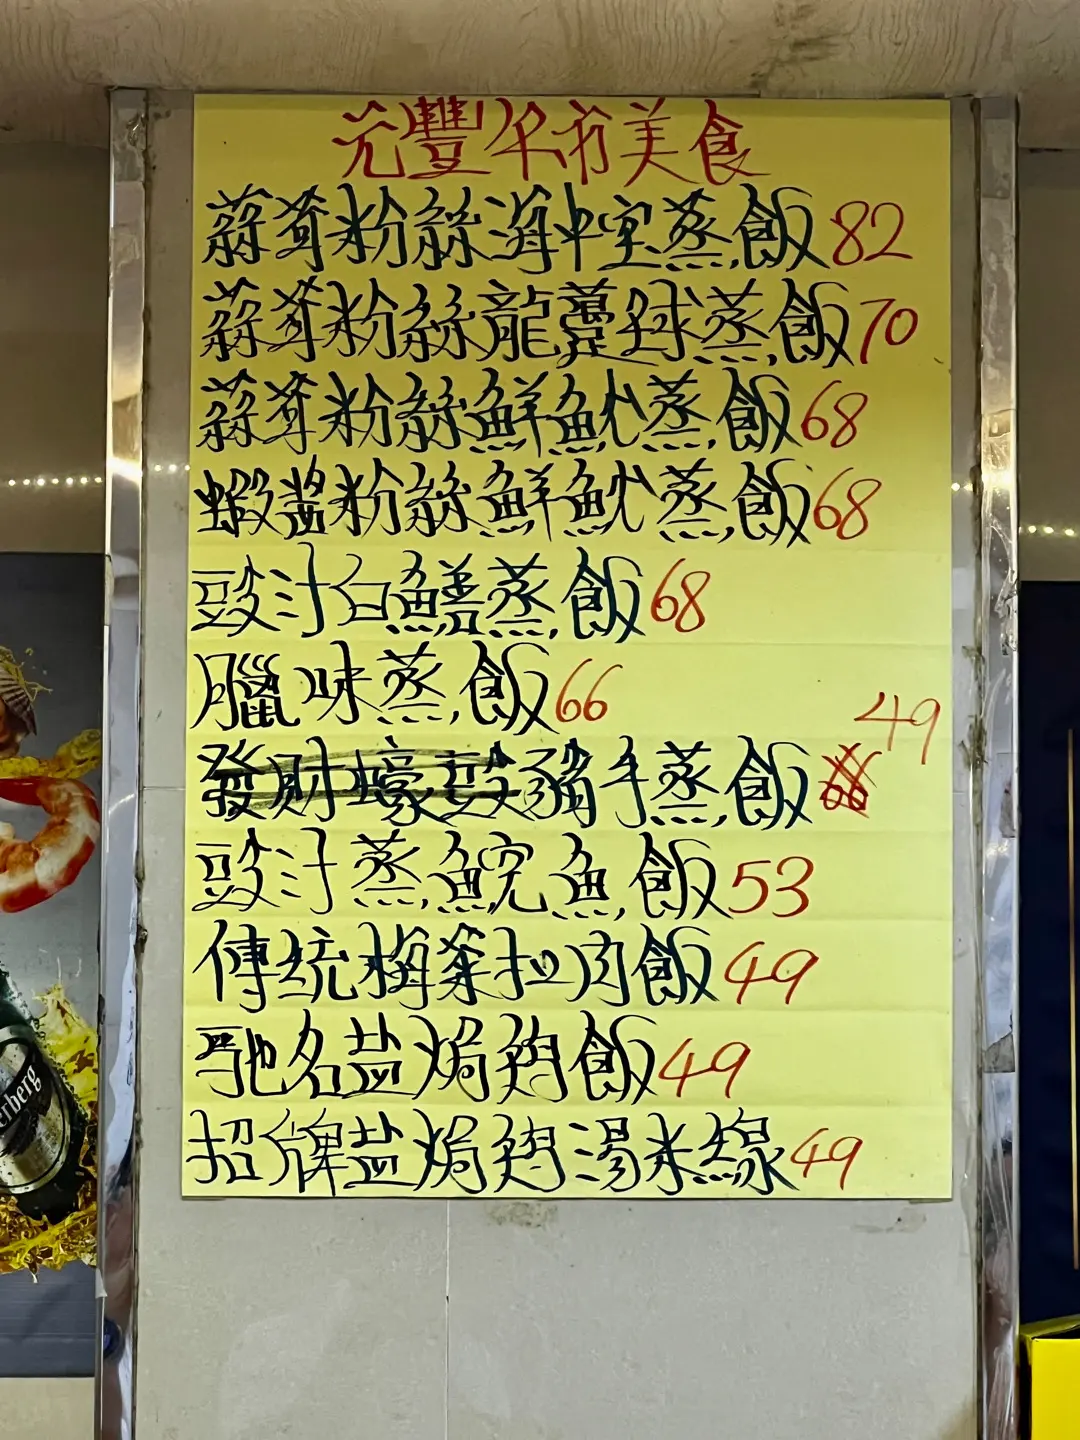 元豐午市美食
蒜茸粉絲海中宝蒸飯82
蒜茸粉絲龍躉球蒸飯70
蒜茸粉絲鮮魷蒸飯68
蝦醬粉絲鮮魷蒸飯68
豉汁白鱔蒸飯68
臘味蒸飯66
發財蠔豉豬手蒸飯66 49
豉汁蒸鯇魚飯53
傳統梅菜扣肉飯49
馳名盐焗鸡飯49
招牌盐焗鸡湯米線49
erberg